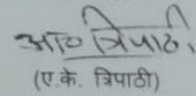 त्रिपाठी
(ए.के. त्रिपाठी)